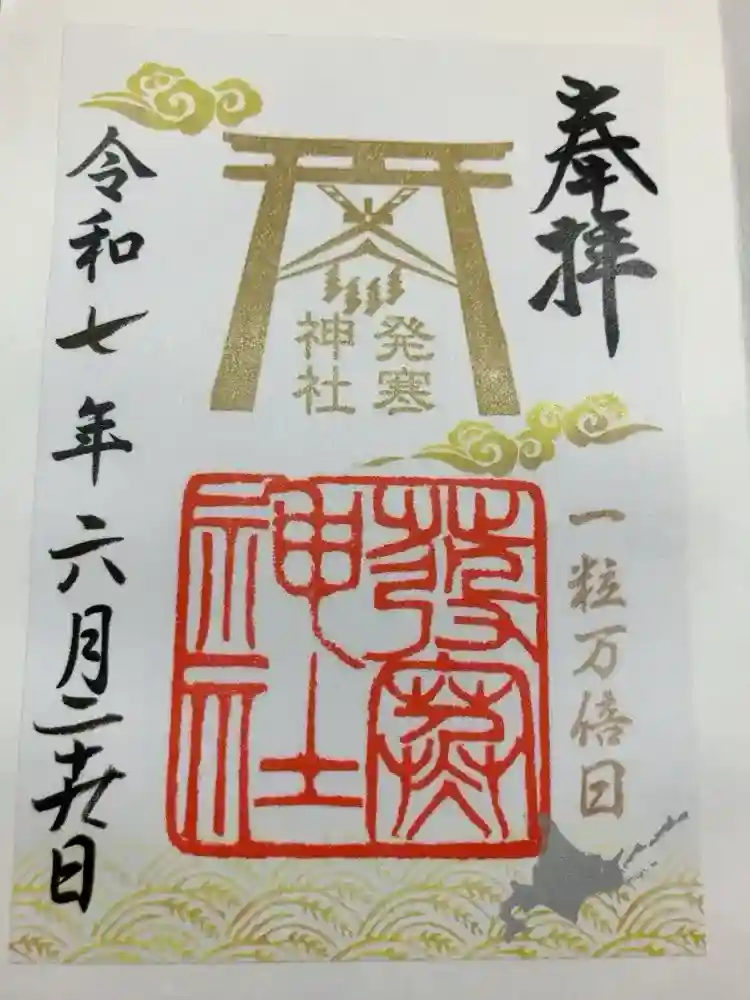 奉拝
発寒
神社
發寒
神社
一粒万倍日
令和七年六月二十九日